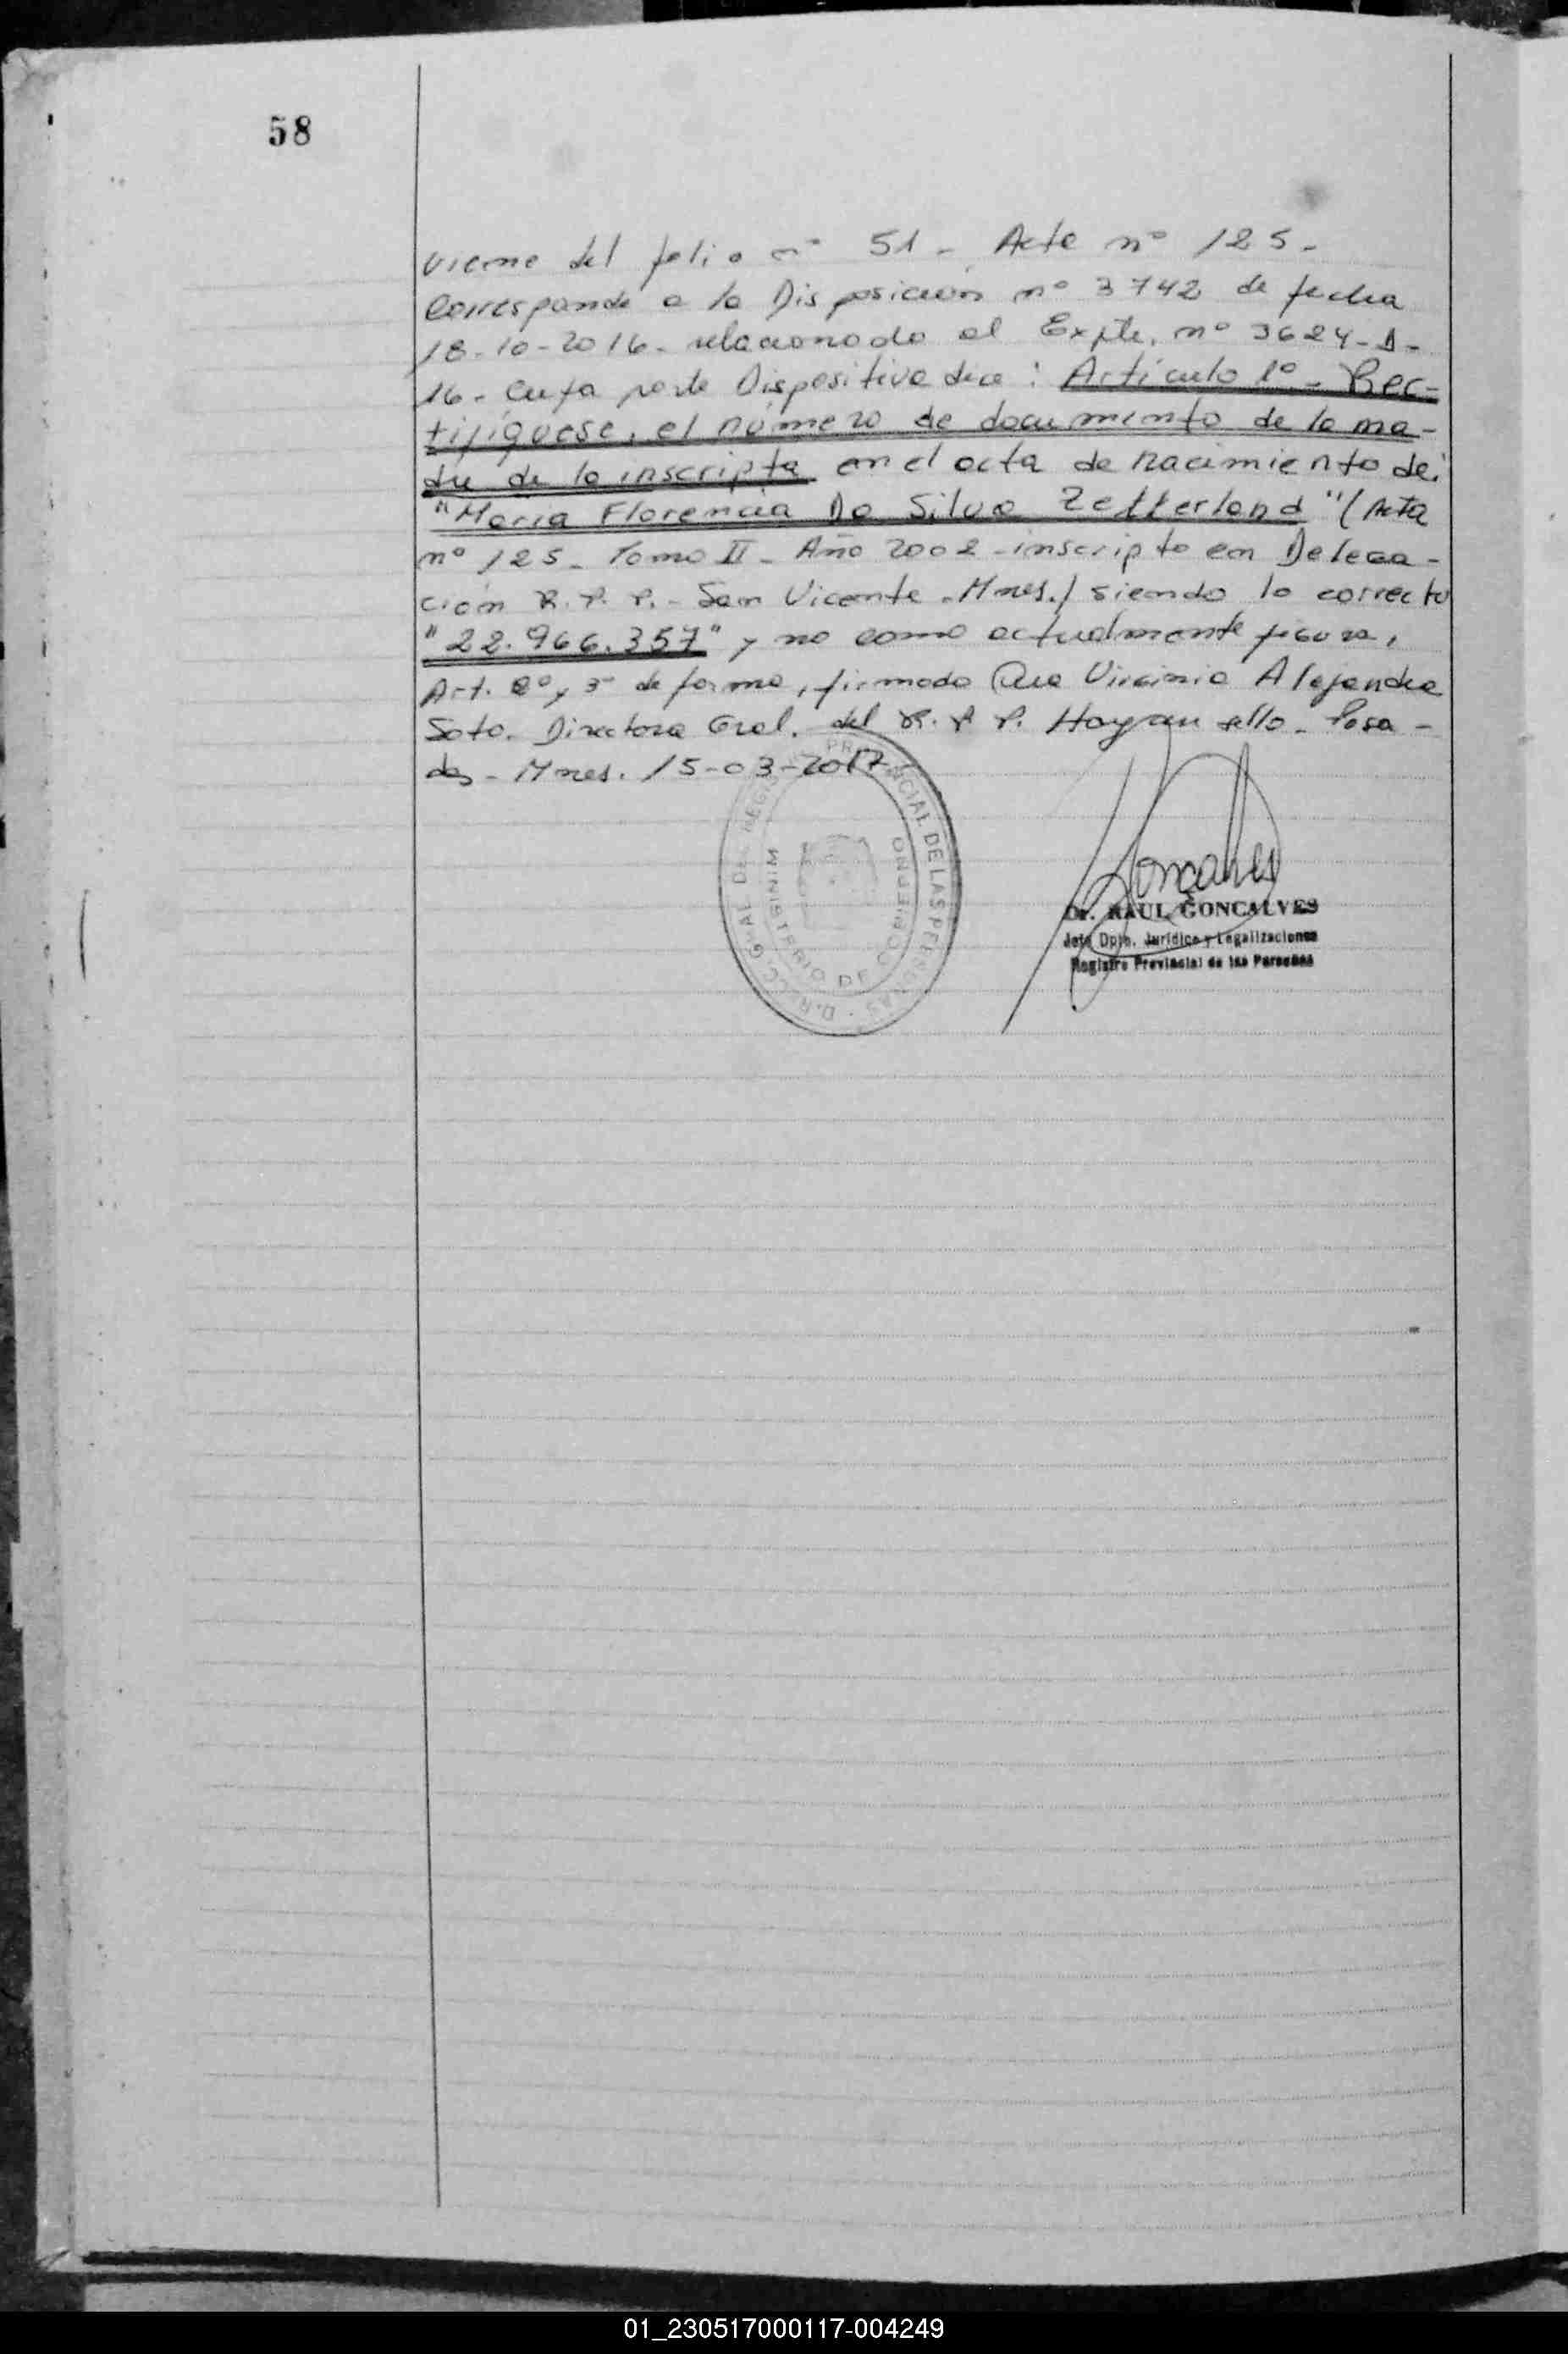 58
Viene del folio nº 51 - Acta nº 125 -
Corresponde a la Disposición nº 3742 de fecha
18-10-2016 - relacionado al Expte. nº 3624-D-
16 - Cuya parte Dispositiva dice: Artículo 1º - Rec-
tifíquese, el número de documento de la ma-
dre de la inscripta en el acta de nacimiento de:
"María Florencia Da Silva Zetterlond" (Acta
nº 125 - Tomo II - Año 2002 - inscripto en Delega-
ción R.P.P. - San Vicente - Mnes.) siendo lo correcto
"22.966.357" y no como actualmente figura,
Art. 2º y 3º de forma, firmado Dra Virginia Alejandra
Soto. Directora Gral. del R.P.P. Hay un sello - Posa-
das - Mnes. 15-03-2017
D.R.C.C. GRAL DEL REGISTRO PROVINCIAL DE LAS PERSONAS
MINISTERIO DE GOBIERNO
Goncalves
Dr. RAUL GONCALVES
Jefe Dpto. Jurídico y Legalizaciones
Registro Provincial de las Personas
01_230517000117-004249